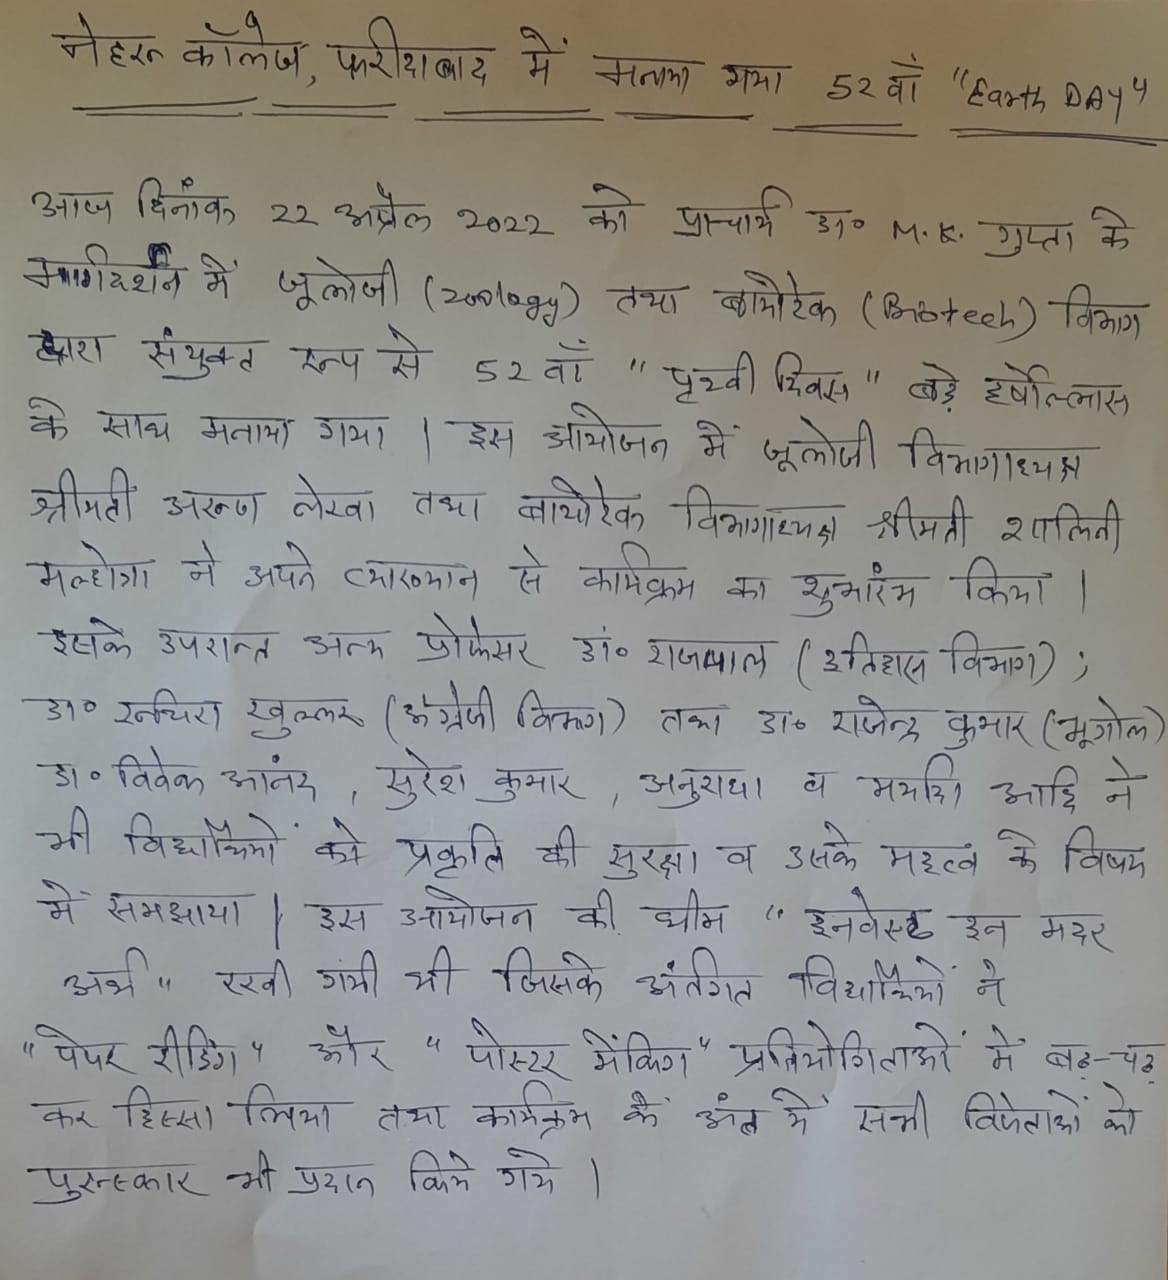 नेहरू कॉलेज, फरीदाबाद में मनाया गया 52 वाँ "Earth DAY"
आज दिनांक 22 अप्रैल 2022 को प्राचार्य डा० M.K. गुप्ता के
मार्गदर्शन में जूलोजी (Zoology) तथा बायोटेक (Biotech) विभाग
द्वारा संयुक्त रूप से 52 वाँ "पृथ्वी दिवस" बड़े हर्षोल्लास
के साथ मनाया गया | इस आयोजन में जूलोजी विभागाध्यक्ष
श्रीमती अरूण लेखा तथा बायोटेक विभागाध्यक्ष श्रीमती शालिनी
मल्होत्रा ने अपने व्याख्यान से कार्यक्रम का शुभारंभ किया |
इसके उपरान्त अन्य प्रोफेसर डॉ० राजपाल (इतिहास विभाग) ,
डा० रूचिरा खुल्लर (अंग्रेजी विभाग) तथा डा० राजेन्द्र कुमार (भूगोल)
डा० विवेक आनंद , सुरेश कुमार , अनुराधा व आदि ने
भी विद्यार्थियों को प्रकृति की सुरक्षा व उसके महत्व के विषय
में समझाया | इस आयोजन की थीम "इनवेस्ट इन मदर
अर्थ" रखी गयी थी जिसके अंर्तगत विद्यार्थियों ने
"पेपर रीडिंग" और "पोस्टर मेंकिग" प्रतियोगिताओं में बढ़-चढ़
कर हिस्सा लिया तथा कार्यक्रम के अंत में सभी विजेताओं को
पुरूस्कार भी प्रदान किये गये |